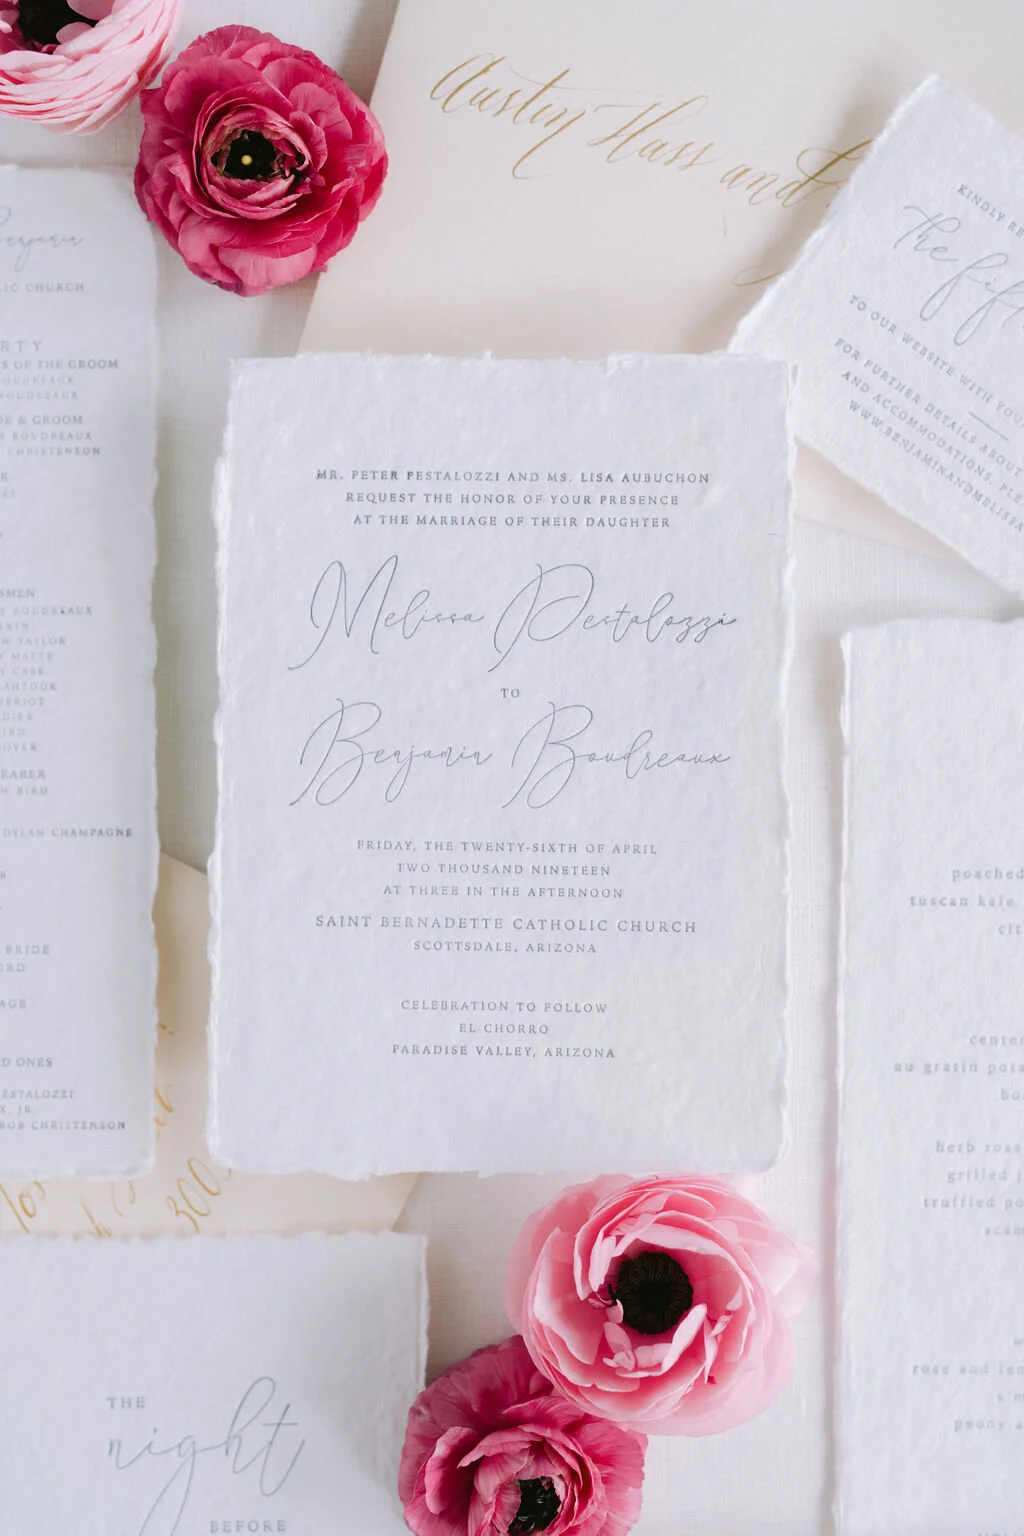 Austin Hass and
KINDLY RE
The fif
TO OUR WEBSITE WITH YOU
FOR FURTHER DETAILS ABOUT
AND ACCOMMODATIONS, PLE
WWW.BENJAMINANDMELISSA
Benjamin
LIC CHURCH
RTY
S OF THE GROOM
BOUDREAUX
BOUDREAUX
DE & GROOM
BOUDREAUX
CHRISTENSON
R
ZZI
SMEN
Y BOUDREAUX
W TAYLOR
Y MATTE
Y CASE
HERIOT
BIRD
OOVER
EARER
W BIRD
DYLAN CHAMPAGNE
BRIDE
ORD
AGE
D ONES
PESTALOZZI
X, JR.
ROB CHRISTENSON
MR. PETER PESTALOZZI AND MS. LISA AUBUCHON
REQUEST THE HONOR OF YOUR PRESENCE
AT THE MARRIAGE OF THEIR DAUGHTER
Melissa Pestalozzi
TO
Benjamin Boudreaux
FRIDAY, THE TWENTY-SIXTH OF APRIL
TWO THOUSAND NINETEEN
AT THREE IN THE AFTERNOON
SAINT BERNADETTE CATHOLIC CHURCH
SCOTTSDALE, ARIZONA
CELEBRATION TO FOLLOW
EL CHORRO
PARADISE VALLEY, ARIZONA
poached
tuscan kale
cit
center
au gratin pota
bo
herb roas
grilled j
truffled po
scam
rose and lem
s'm
peony a
300
THE
night
BEFORE